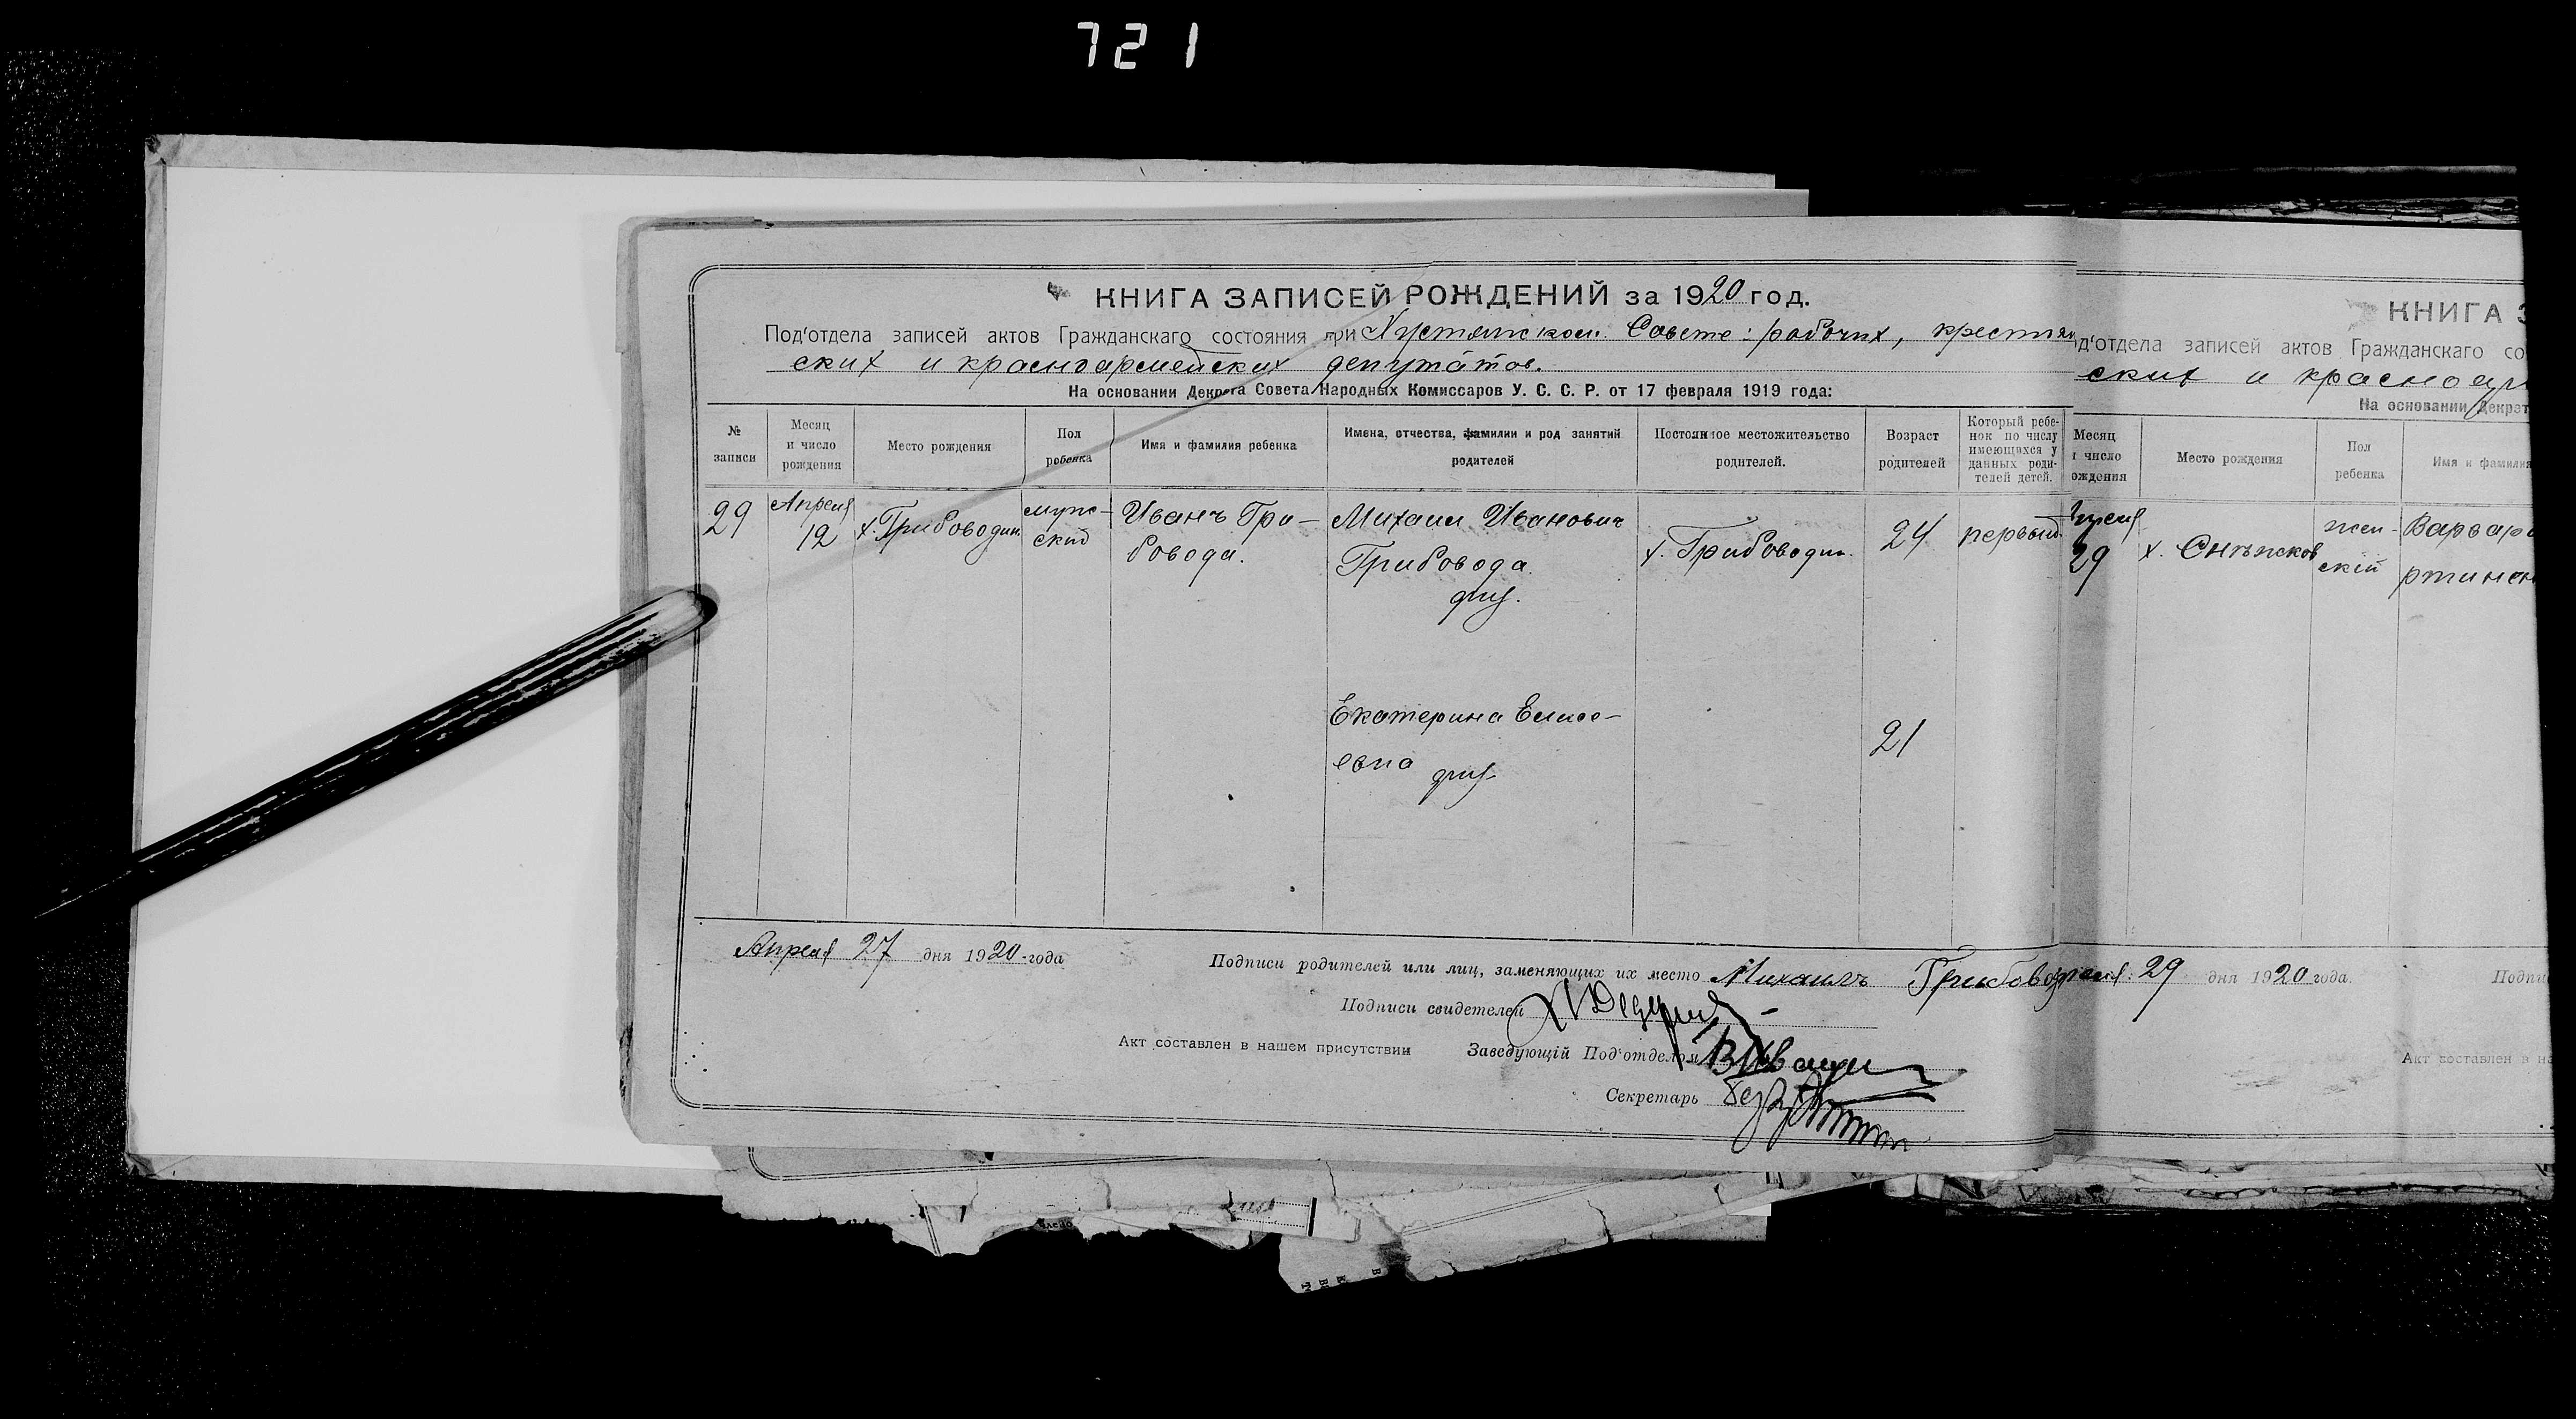 721
КНИГА ЗАПИСЕЙ РОЖДЕНИЙ за 1920 год.
Под'отдела записей актов Гражданскаго состояния при Совете: рабочих, крестьян
ских и красноармейских депутатов.
На основании Декрета Совета Народных Комиссаров У. С. С. Р. от 17 февраля 1919 года:
№ записи
Месяц и число рождения
Место рождения
Пол ребенка
Имя и фамилия ребенка
Имена, отчества, фамилии и род занятий родителей
Постоянное местожительство родителей.
Возраст родителей
Который ребе-
нок по числу
имеющихся у
данных роди-
телей детей.
29
Апреля
12
х. Грибоводин.
мужс-
ский
Иванъ Гри-
бовода.
Михаил Иванович
Грибовода.
х. Грибоводин.
24
первый
Екатерина Елисе-
евна
21
Апреля 27 дня 1920 года
Подписи родителей или лиц, заменяющих их место Михаилъ Грибовода
Подписи свидетелей
Акт составлен в нашем присутствии Заведующій Под'отделом
Секретарь
КНИГА З
д'отдела записей актов Гражданскаго со
ских и красноар
На основании Декрет
Месяц
и число
ождения
Место рождения
Пол
ребенка
Имя и фамилия
29
х.
жен-
скій
Варвара
29 дня 1920 года.
Подпи
Акт составлен в на